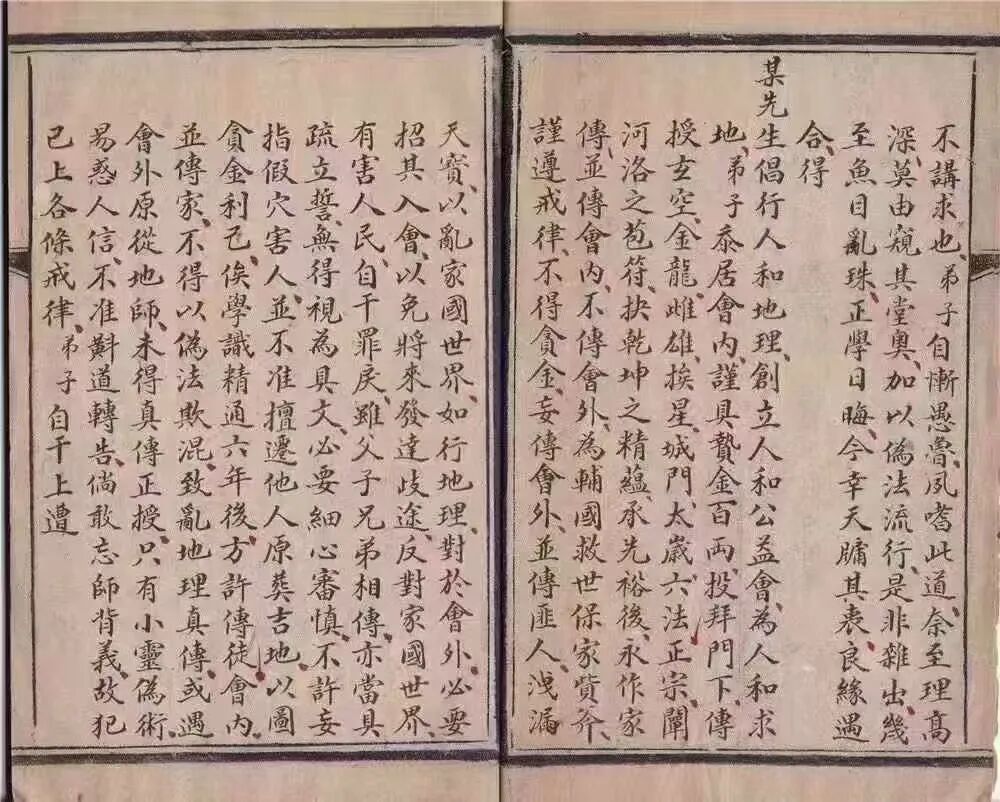 不講求也、弟子自慚愚魯、夙嗜此道、奈至理高
深、莫由窺其堂奧、加以偽法流行、是非雜出、幾
至魚目亂珠、正學日晦、今幸天牖其衷、良緣遇
合、得
某先生倡行人和地理、創立人和公益會、為人和求
地、弟子忝居會內、謹具贄金百両、投拜門下、傳
授玄空、金龍雌雄、挨星城門、太歲六法、正宗、闡
河洛之苞符、抉乾坤之精蘊、承先裕後、永作家
傳、並傳會內、不傳會外、為輔國救世保家貲斧、
謹遵戒律、不得貪金、妄傳會外、並傳匪人、洩漏
天寶、以亂家國世界、如行地理、對於會外、必要
招其入會、以免將來發達歧途、反對家國世界、
有害人民、自干罪戾、雖父子兄弟相傳、亦當具
疏立誓、無得視為具文、必要細心審慎、不許妄
指假穴害人、並不准擅遷他人原葬吉地、以圖
貪金利己、俟學識精通六年後、方許傳徒會內、
並傳家、不得以偽法欺混、致亂地理真傳、或遇
會外原從地師、未得真傳正授、只有小靈偽術、
易惑人信、不准斢道轉告、倘敢忘師背義、故犯
已上各條戒律、弟子自干上遭